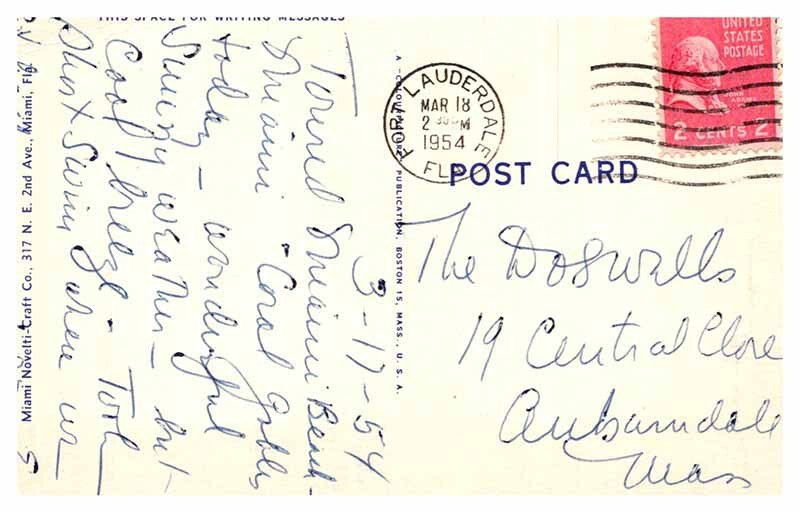 THIS SPACE FOR WRITING MESSAGES
3-17-54
Toured Miami Beach-
Miami - Coral Gables
today - wonderful
Sunny weather - but
Cool breeze - Took
Swim where we
Miami Novelti-Craft Co., 317 N. E. 2nd Ave., Miami, Fla.
A "COLOURPICTURE" PUBLICATION, BOSTON 15, MASS., U. S. A.
FORT LAUDERDALE
MAR 18
2 30 PM
1954
FLA
UNITED
STATES
POSTAGE
JOHN
ADAMS
2 CENTS 2
POST CARD
The Doswells
19 Central Close
Auburndale
Mass